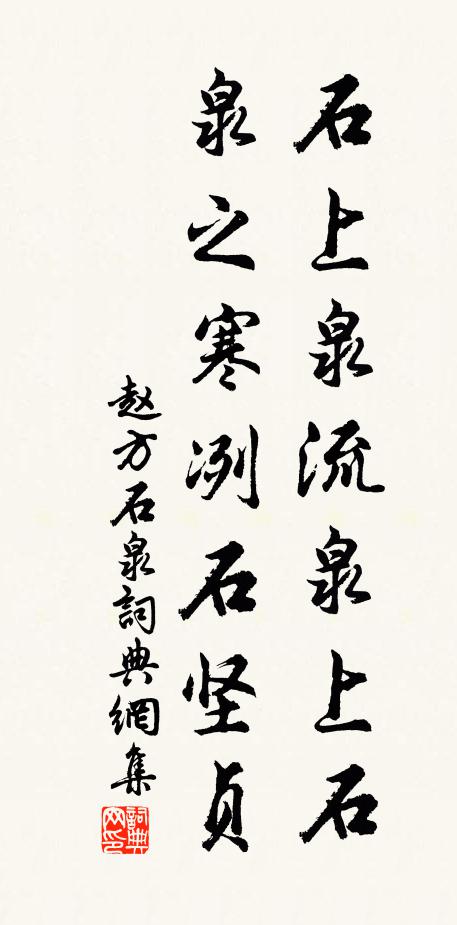 石上泉流泉上石
泉之寒冽石坚贞
赵方石泉詞典網集
詞典网印